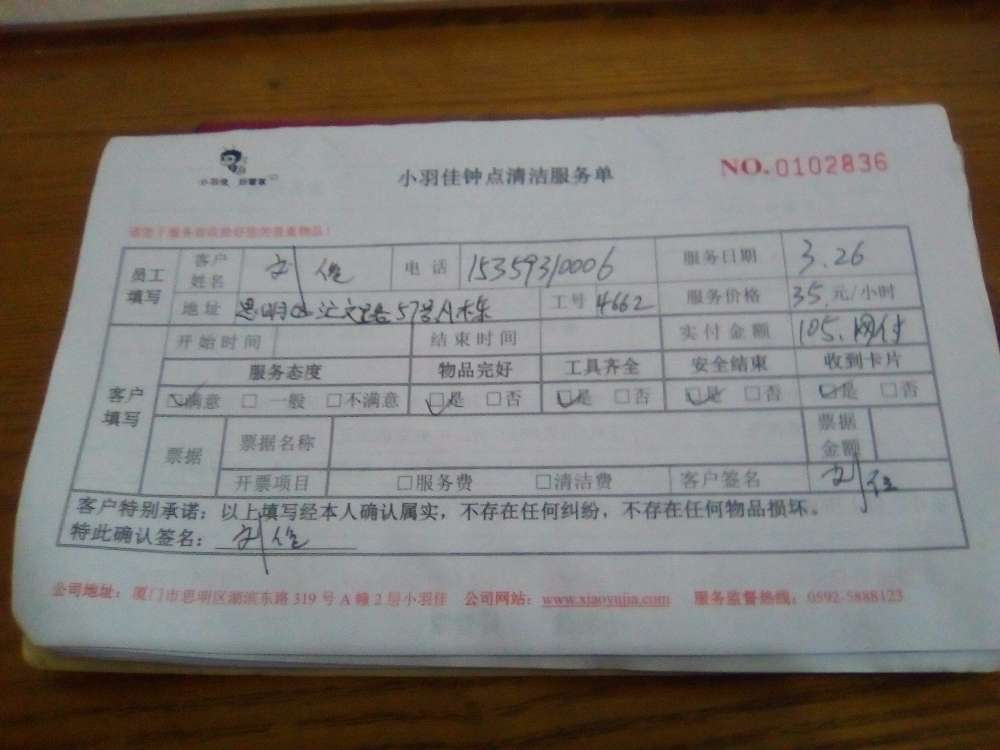 小羽佳 好管家
小羽佳钟点清洁服务单
NO.0102836
员工填写 客户姓名 刘 电话 15359310006 服务日期 3.26
地址 思明区 57号 工号 4662 服务价格 35.元/小时
客户填写 开始时间 结束时间 实付金额 105.网付
服务态度 物品完好 工具齐全 安全结束 收到卡片
☑满意 □一般 □不满意 ☑是 □否 ☑是 □否 ☑是 □否 ☑是 □否
票据 票据名称 票据金额
开票项目 □服务费 □清洁费 客户签名 刘
客户特别承诺：以上填写经本人确认属实，不存在任何纠纷，不存在任何物品损坏。
特此确认签名：刘
公司地址：厦门市思明区湖滨东路 319 号 A 幢 2 层小羽佳 公司网站：www.xiaoyujia.com 服务监督热线：0592-5888123